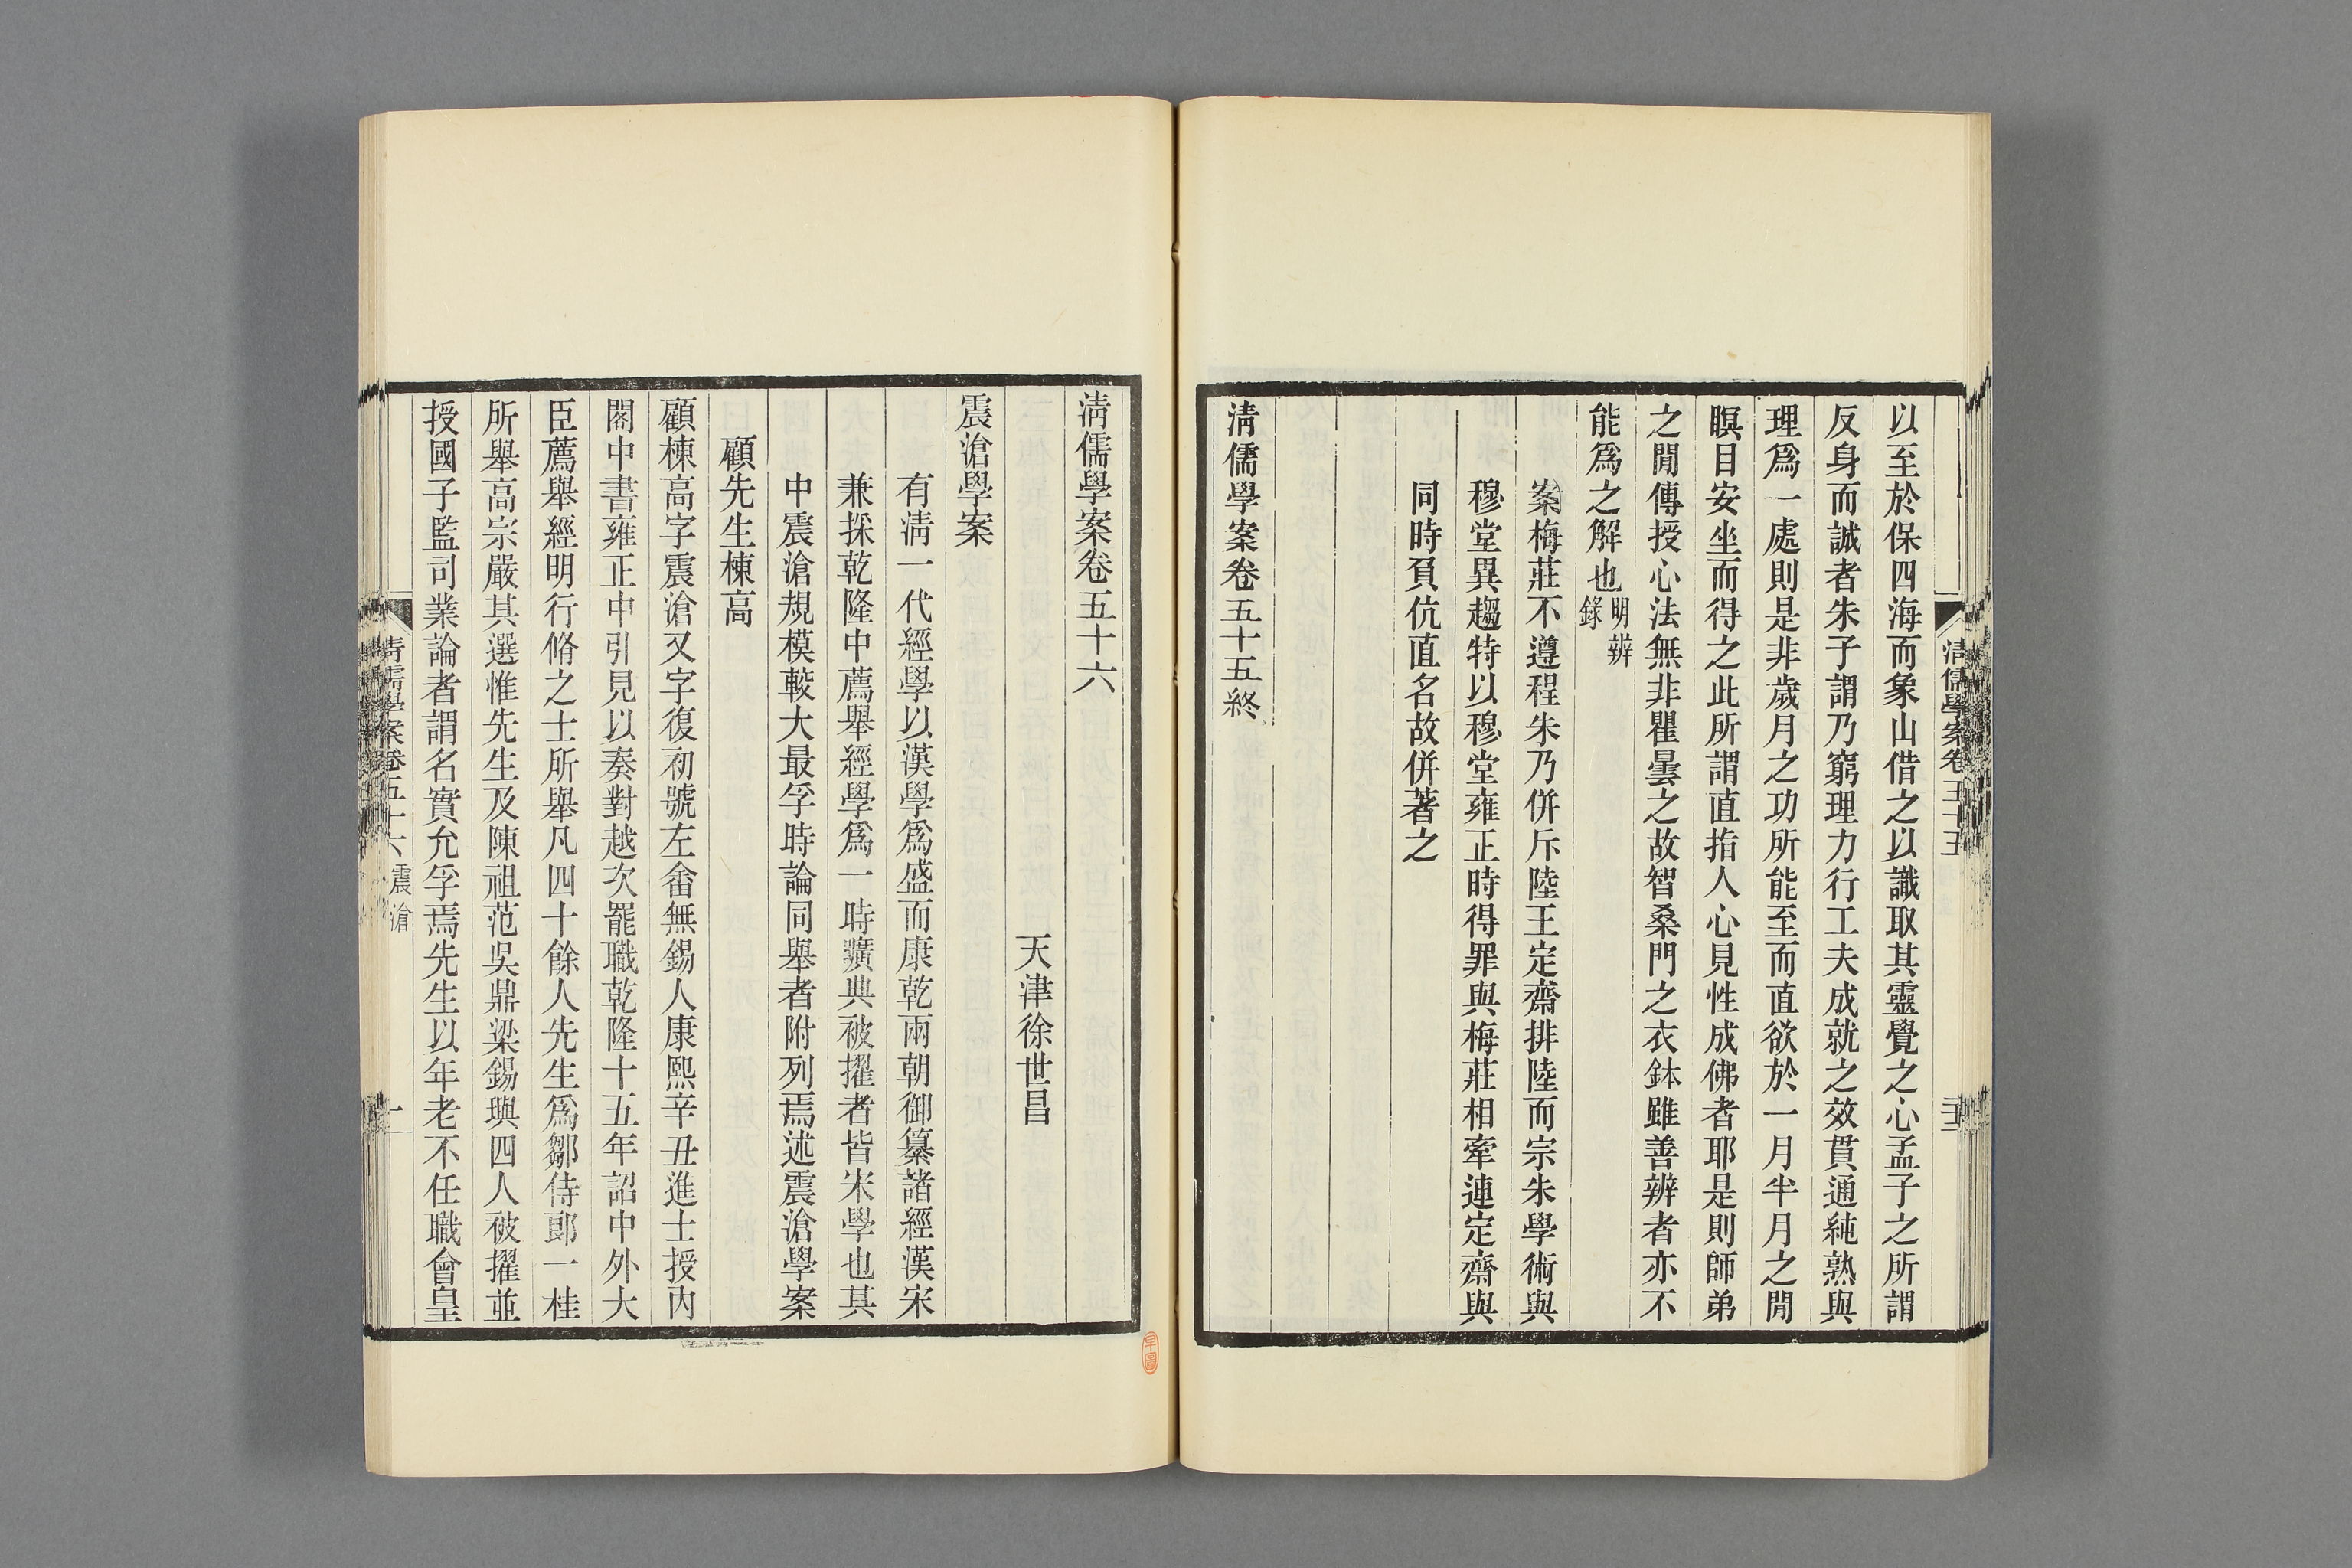 以至於保四海而象山借之以識取其靈覺之心孟子之所謂
反身而誠者朱子謂乃窮理力行工夫成就之效貫通純熟與
理爲一處則是非歲月之功所能至而直欲於一月半月之閒
瞑目安坐而得之此所謂直指人心見性成佛者耶是則師弟
之閒傳授心法無非瞿曇之故智桑門之衣鉢雖善辨者亦不
能爲之解也明辨錄
案梅莊不遵程朱乃併斥陸王定齋排陸而宗朱學術與
穆堂異趨特以穆堂雍正時得罪與梅莊相牽連定齋與
同時負伉直名故併著之
清儒學案卷五十五終
清儒學案卷五十五
清儒學案卷五十六
天津徐世昌
震滄學案
有清一代經學以漢學爲盛而康乾兩朝御纂諸經漢宋
兼採乾隆中薦舉經學爲一時曠典被擢者皆宋學也其
中震滄規模較大最孚時論同舉者附列焉述震滄學案
顧先生棟高
顧棟高字震滄又字復初號左畬無錫人康熙辛丑進士授內
閣中書雍正中引見以奏對越次罷職乾隆十五年詔中外大
臣薦舉經明行脩之士所舉凡四十餘人先生爲鄒侍郞一桂
所舉高宗嚴其選惟先生及陳祖范吳鼎梁錫璵四人被擢並
授國子監司業論者謂名實允孚焉先生以年老不任職會皇
清儒學案卷五十六 震滄 一